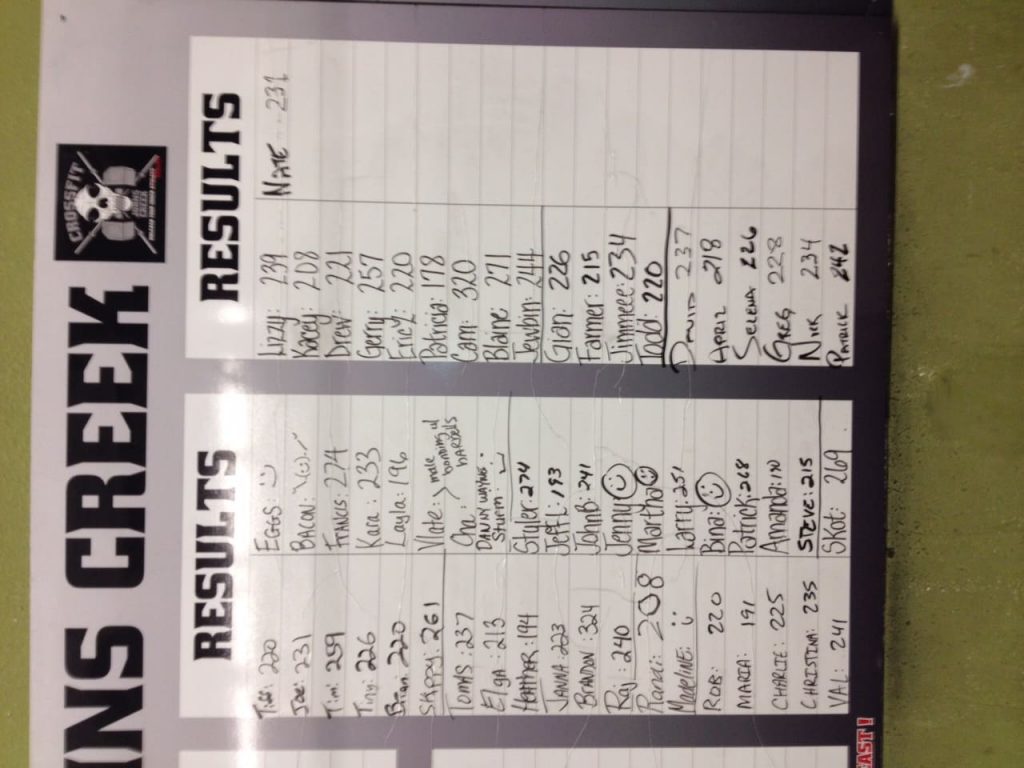 INS CREEK
CROSSFIT
RESULTS
220
Joe: 231
Tim: 259
Tiny: 226
Brian: 220
SKIPPY: 261
TomHS: 237
Elga: 213
HeatHER: 194
JANNA: 223
BRANDON: 324
Raj: 240
208
MadeLiNE: :)
ROB: 220
MARIA: 191
CHARLIE: 225
CHRISTINA: 235
VAL: 241
EGGS: :)
BACON:
FRANCIS: 274
Kara: 233
Layla: 196
male
Cha:
Styler: 274
JeFF L: 193
JOHN B: 241
Jenny :)
Martha :)
Larry: 251
Bina: :)
Patrick: 268
Amanda:
STEVE: 215
SKot: 269
RESULTS
Lizzy: 239
Kacey: 208
Drew: 221
Gern: 257
Eric Z: 220
Patricia: 178
Cam: 320
Blaine: 271
Jewbin: 244
Gian: 226
Farmer: 215
Jimmeee: 234
Todd: 220
DAVID 237
APRIL 218
SELENA 226
GREG 228
NIK 234
PATRICK 242
NATE - 231
AST!